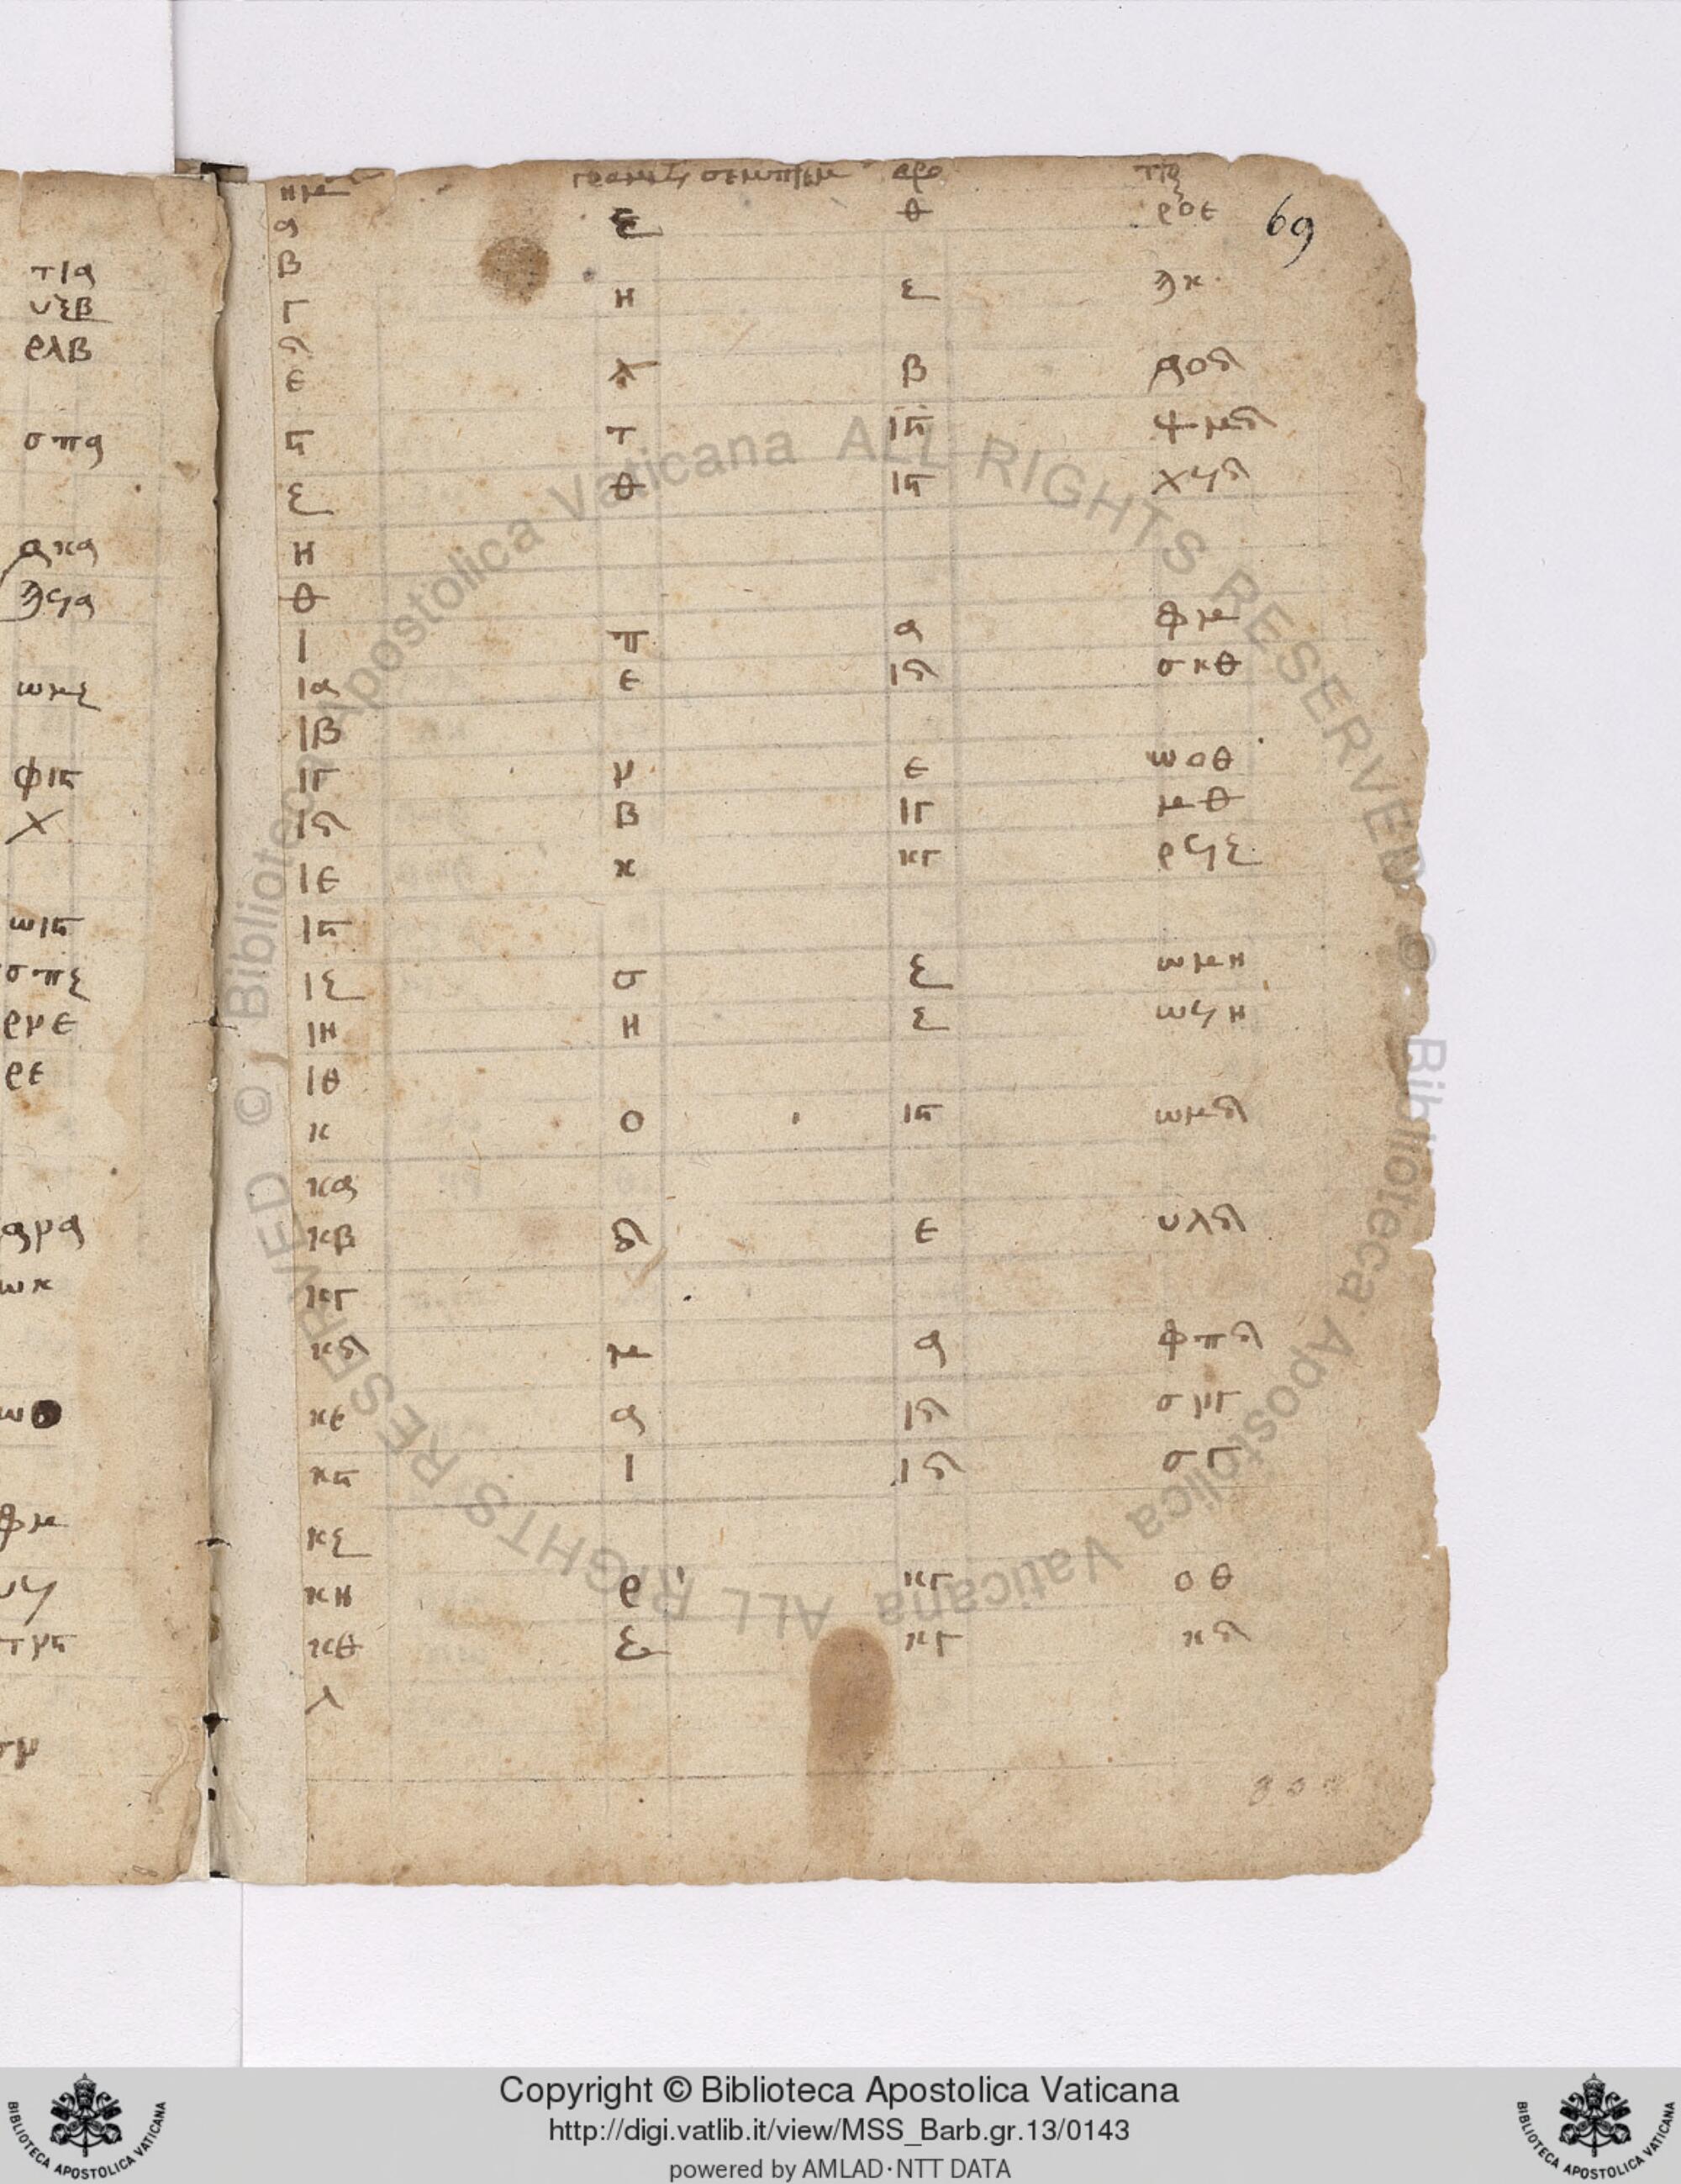 α ζ θ ροε 69
β
γ η ζ ϡκ
δ
ε λ β αοδ
ϛ τ ιϛ ψμδ
ζ θ ιϛ χϟδ
η
θ
ι π α φμ
ια ε ιδ σκθ
ιβ
ιγ ν ε ωοθ
ιδ β ιγ μθ
ιε κ κγ ρϟζ
ιϛ
ιζ σ ζ ωμη
ιη η ζ ωϟη
ιθ
κ ο ιϛ ωμδ
κα
κβ δ ε υλδ
κγ
κδ μ α φπδ
κε α ιδ σνγ
κϛ ι ιδ σγ
κζ
κη ρ κγ οθ
κθ ζ κγ κδ
λ
τια
υξβ
ρλβ
σπα
ακα
ϡϟα
ωμζ
φιϛ
χ
ωιϛ
σπζ
ρνε
ρε
ανα
ωκ
φμ
τνϛ
Copyright © Biblioteca Apostolica Vaticana
http://digi.vatlib.it/view/MSS_Barb.gr.13/0143
powered by AMLAD·NTT DATA
BIBLIOTECA APOSTOLICA VATICANA
BIBLIOTECA APOSTOLICA VATICANA
© Biblioteca Apostolica Vaticana ALL RIGHTS RESERVED
© Biblioteca Apostolica Vaticana ALL RIGHTS RESERVED